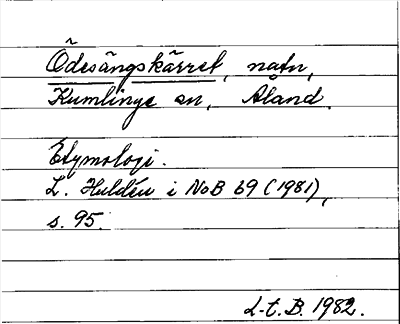 Ödesängskärret, natn,
Kumlinge sn, Åland.
Etymologi.
L. Huldén i NoB 69 (1981),
s. 95.
L-t. B. 1982.